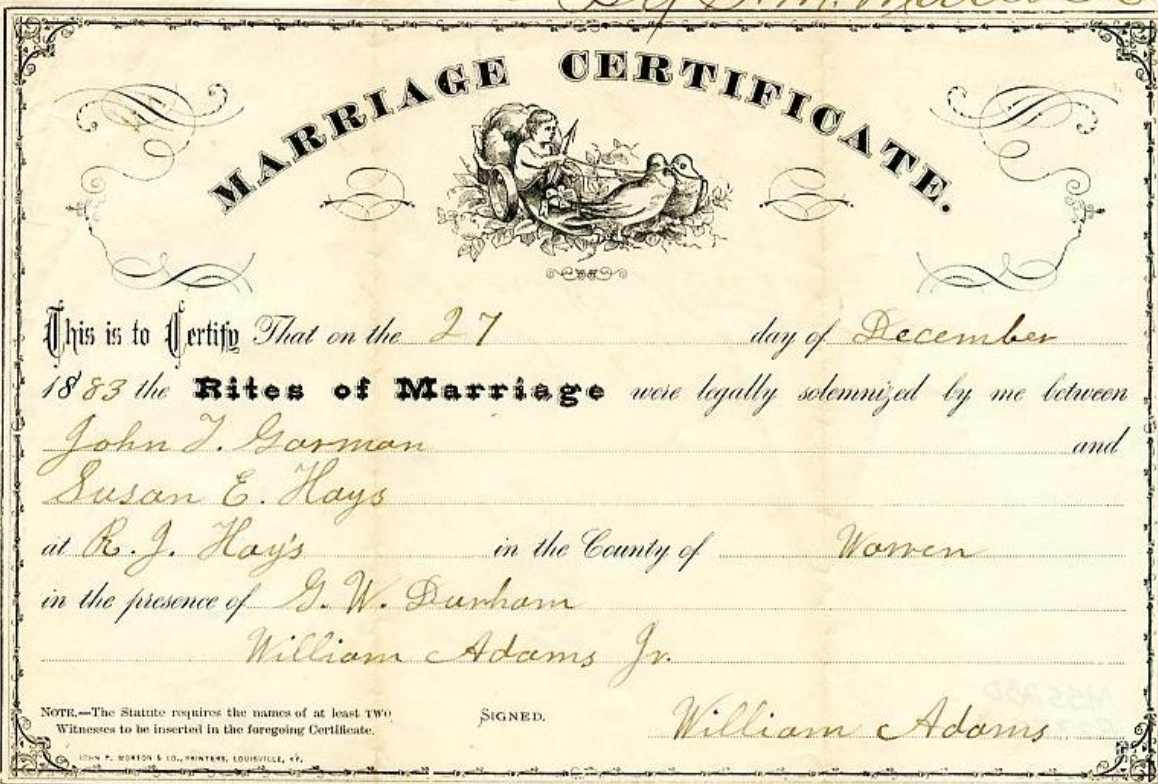 By
MARRIAGE CERTIFICATE.
This is to Certify That on the 27 day of December
1883 the Rites of Marriage were legally solemnized by me between
John T. Garman and
Susan E. Hays
at R. J. Hay's in the County of Warren
in the presence of G. W. Durham
William Adams Jr.
NOTE.—The Statute requires the names of at least TWO
Witnesses to be inserted in the foregoing Certificate.
SIGNED. William Adams
JOHN P. MORTON & CO., PRINTERS, LOUISVILLE, KY.